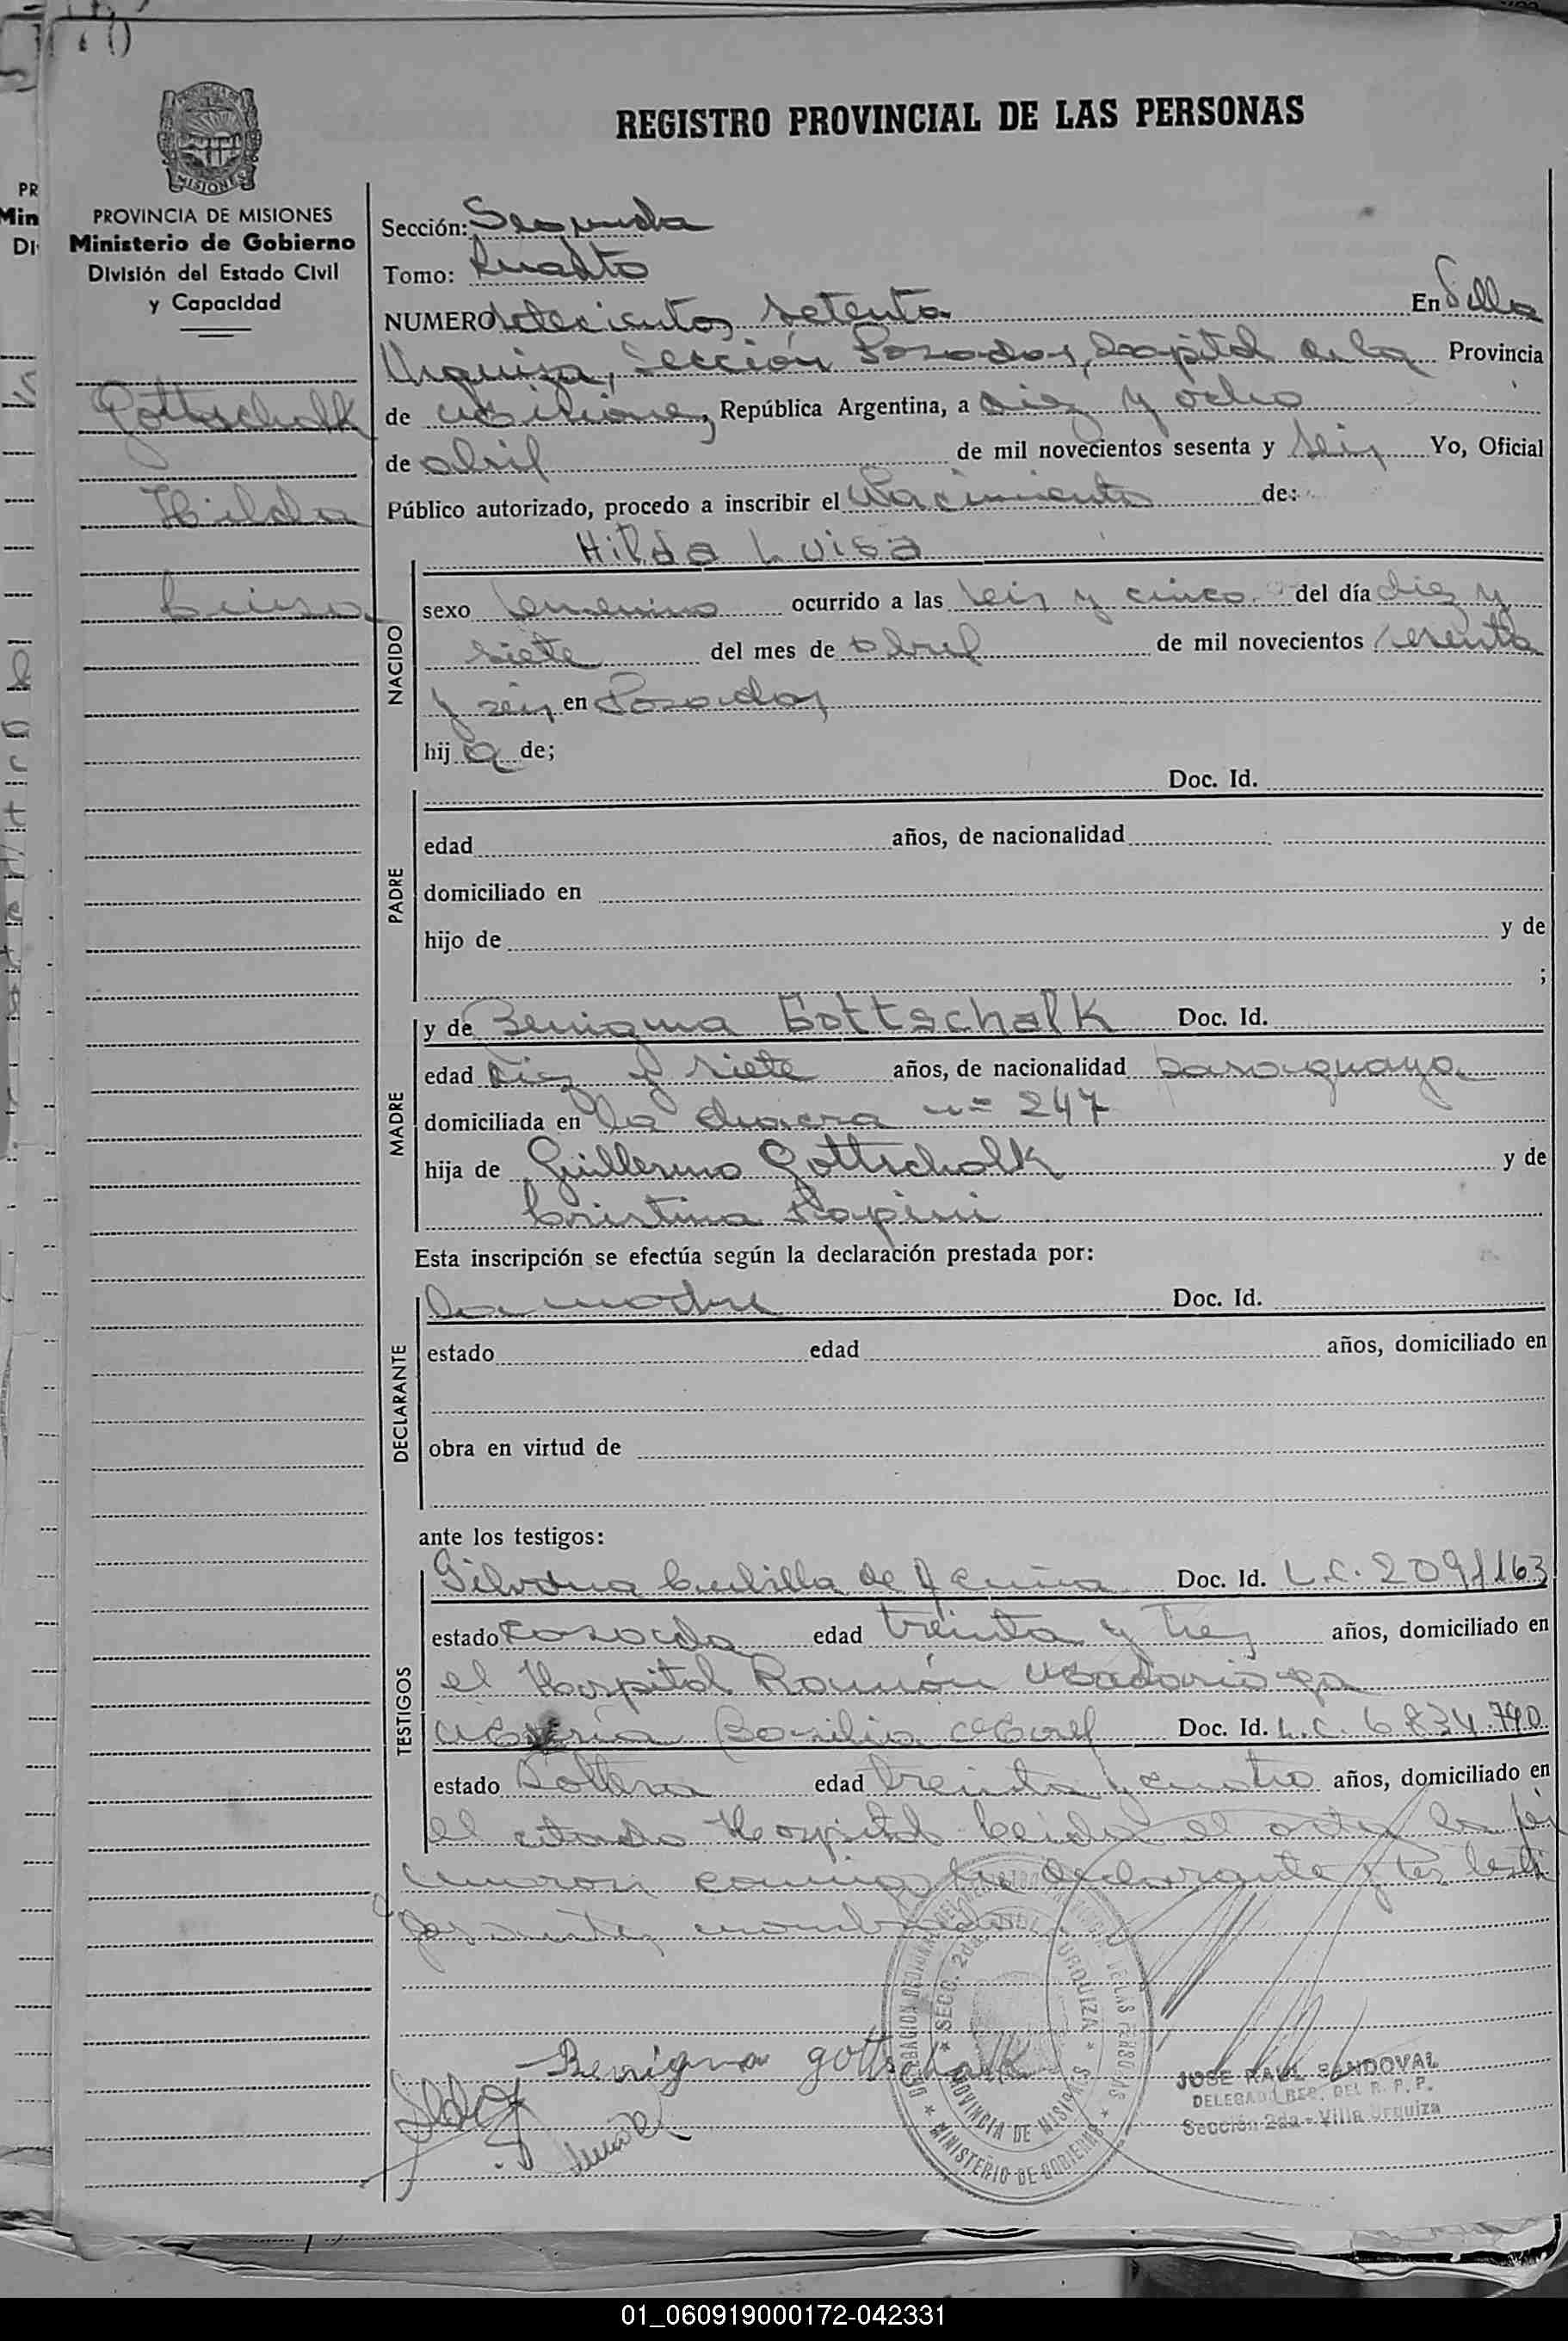 REGISTRO PROVINCIAL DE LAS PERSONAS
MISIONES
PROVINCIA DE MISIONES
Ministerio de Gobierno
División del Estado Civil
y Capacidad
Gottschalk
Hilda
Luisa
Sección: Segunda
Tomo: Cuarto
NUMERO setecientos setenta En Villa
Urquiza, Sección Posadas, Capital de la Provincia
de Misiones, República Argentina, a diez y ocho
de abril de mil novecientos sesenta y seis Yo, Oficial
Público autorizado, procedo a inscribir el Nacimiento de:
Hilda Luisa
NACIDO
sexo femenino ocurrido a las seis y cinco del día diez y
siete del mes de abril de mil novecientos sesenta
y seis en Posadas
hij a de;
PADRE
Doc. Id.
edad años, de nacionalidad
domiciliado en
hijo de y de
;
MADRE
y de Benigna Gottschalk Doc. Id.
edad diez y siete años, de nacionalidad paraguaya
domiciliada en la chacra nº 247
hija de Guillermo Gottschalk y de
Cristina
Esta inscripción se efectúa según la declaración prestada por:
DECLARANTE
la madre Doc. Id.
estado edad años, domiciliado en
obra en virtud de
ante los testigos:
TESTIGOS
de Acuña Doc. Id. L.C. 2091163
estado casada edad treinta y tres años, domiciliado en
el Hospital Ramón Madariaga
María Basilia Doc. Id. L.C. 6.834.790
estado soltera edad treinta y cuatro años, domiciliado en
el citado Hospital Leída el acta, la fir
maron conmigo la declarante y los testi
gos antes nombrados
Benigna gottschalk
SECC. 2da. URQUIZA
PROVINCIA DE MISIONES
MINISTERIO DE GOBIERNO
JOSE RAUL SANDOVAL
DELEGADO REG. DEL R. P. P.
Sección 2da - Villa Urquiza
01_060919000172-042331